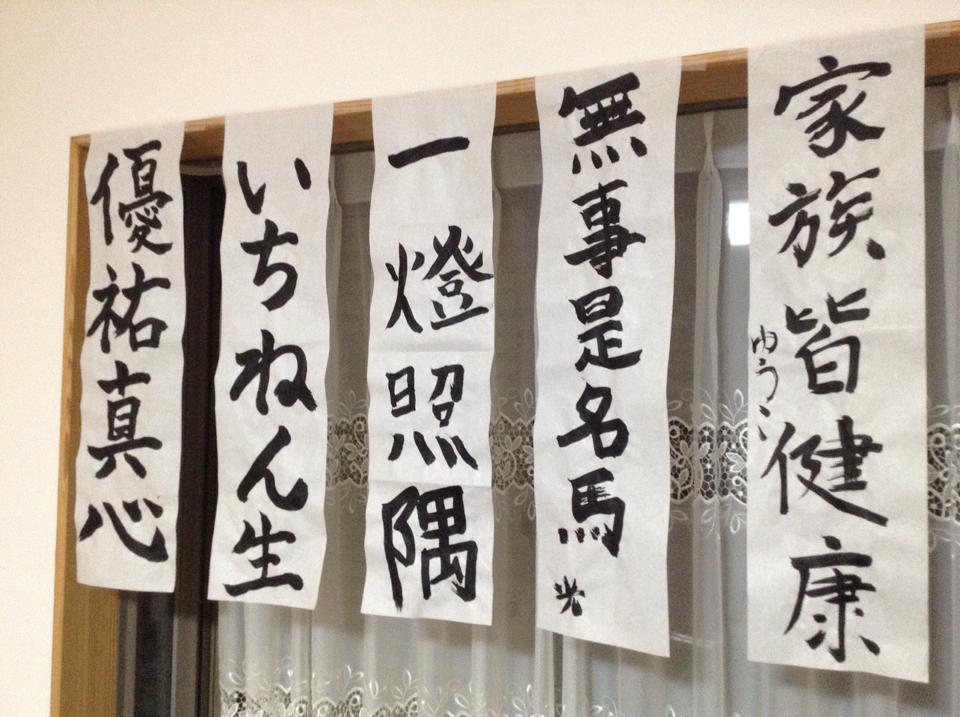 家族皆健康
ゆうい
無事是名馬
光
一燈照隅
いちねん生
優祐真心